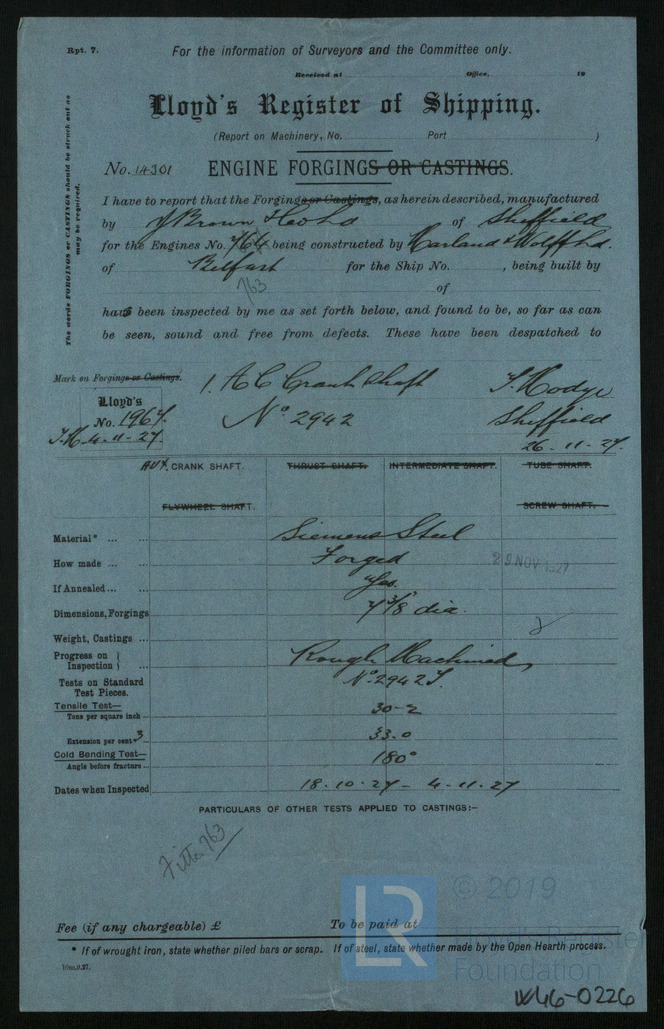 Rpt. 7.
For the information of Surveyors and the Committee only.
Received at Office, 19
Lloyd's Register of Shipping.
(Report on Machinery, No. Port )
The words FORGINGS or CASTINGS should be struck out as may be required.
No. 14301 ENGINE FORGINGS OR CASTINGS.
I have to report that the Forgings or Castings, as herein described, manufactured
by J Brown & Co Ld of Sheffield
for the Engines No. 764 being constructed by Harland & Wolff Ld.
of Belfast for the Ship No. , being built by
763 of
have been inspected by me as set forth below, and found to be, so far as can
be seen, sound and free from defects. These have been despatched to
Mark on Forgings or Castings.
1. A C Crank Shaft T. Hodge
Lloyd's
No. 1967. No. 2942 Sheffield
T.H. 4-11-27. 26-11-27.
AUX. CRANK SHAFT. THRUST SHAFT. INTERMEDIATE SHAFT. TUBE SHAFT.
FLYWHEEL SHAFT. SCREW SHAFT.
Material* ... ... Siemens Steel
How made ... ... Forged 29 NOV 1927
If Annealed ... ... Yes.
Dimensions, Forgings 7 3/8 dia.
Weight, Castings ...
Progress on Inspection } ... Rough Machined
Tests on Standard Test Pieces. No. 2942
Tensile Test—
Tons per square inch ... 30-2
Extension per cent 3 33.0
Cold Bending Test— 180°
Angle before fracture ...
Dates when Inspected 18.10.27 – 4.11.27
PARTICULARS OF OTHER TESTS APPLIED TO CASTINGS:–
763
Fee (if any chargeable) £ To be paid at
* If of wrought iron, state whether piled bars or scrap. If of steel, state whether made by the Open Hearth process.
LR
© 2019
Lloyd's Register
Foundation
W46-0226